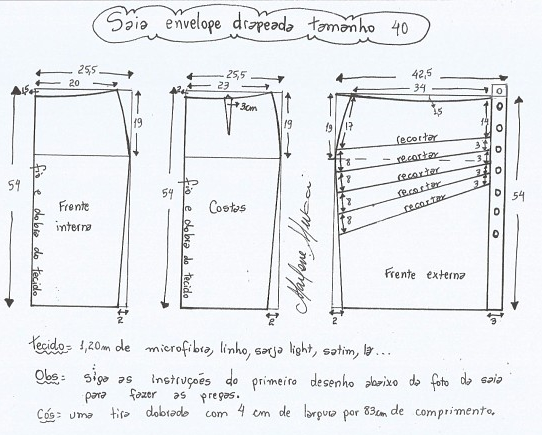 Saia envelope drapeada tamanho 40
25,5
20
1,5
19
54
Frente
interna
fio e dobra do tecido
2
25,5
23
2
3cm
19
Costas
fio e dobra do tecido
2
Marlene Mukai
42,5
34
1,5
19
17
14
recortar
3
recortar
3
8
recortar
3
8
recortar
8
8
54
Frente externa
2
3
Tecido= 1,20m de microfibra, linho, sarja light, satim, lã...
Obs= Siga as instruções do primeiro desenho abaixo da foto da saia
para fazer as pregas.
Cós= uma tira dobrada com 4 cm de largura por 83cm de comprimento.